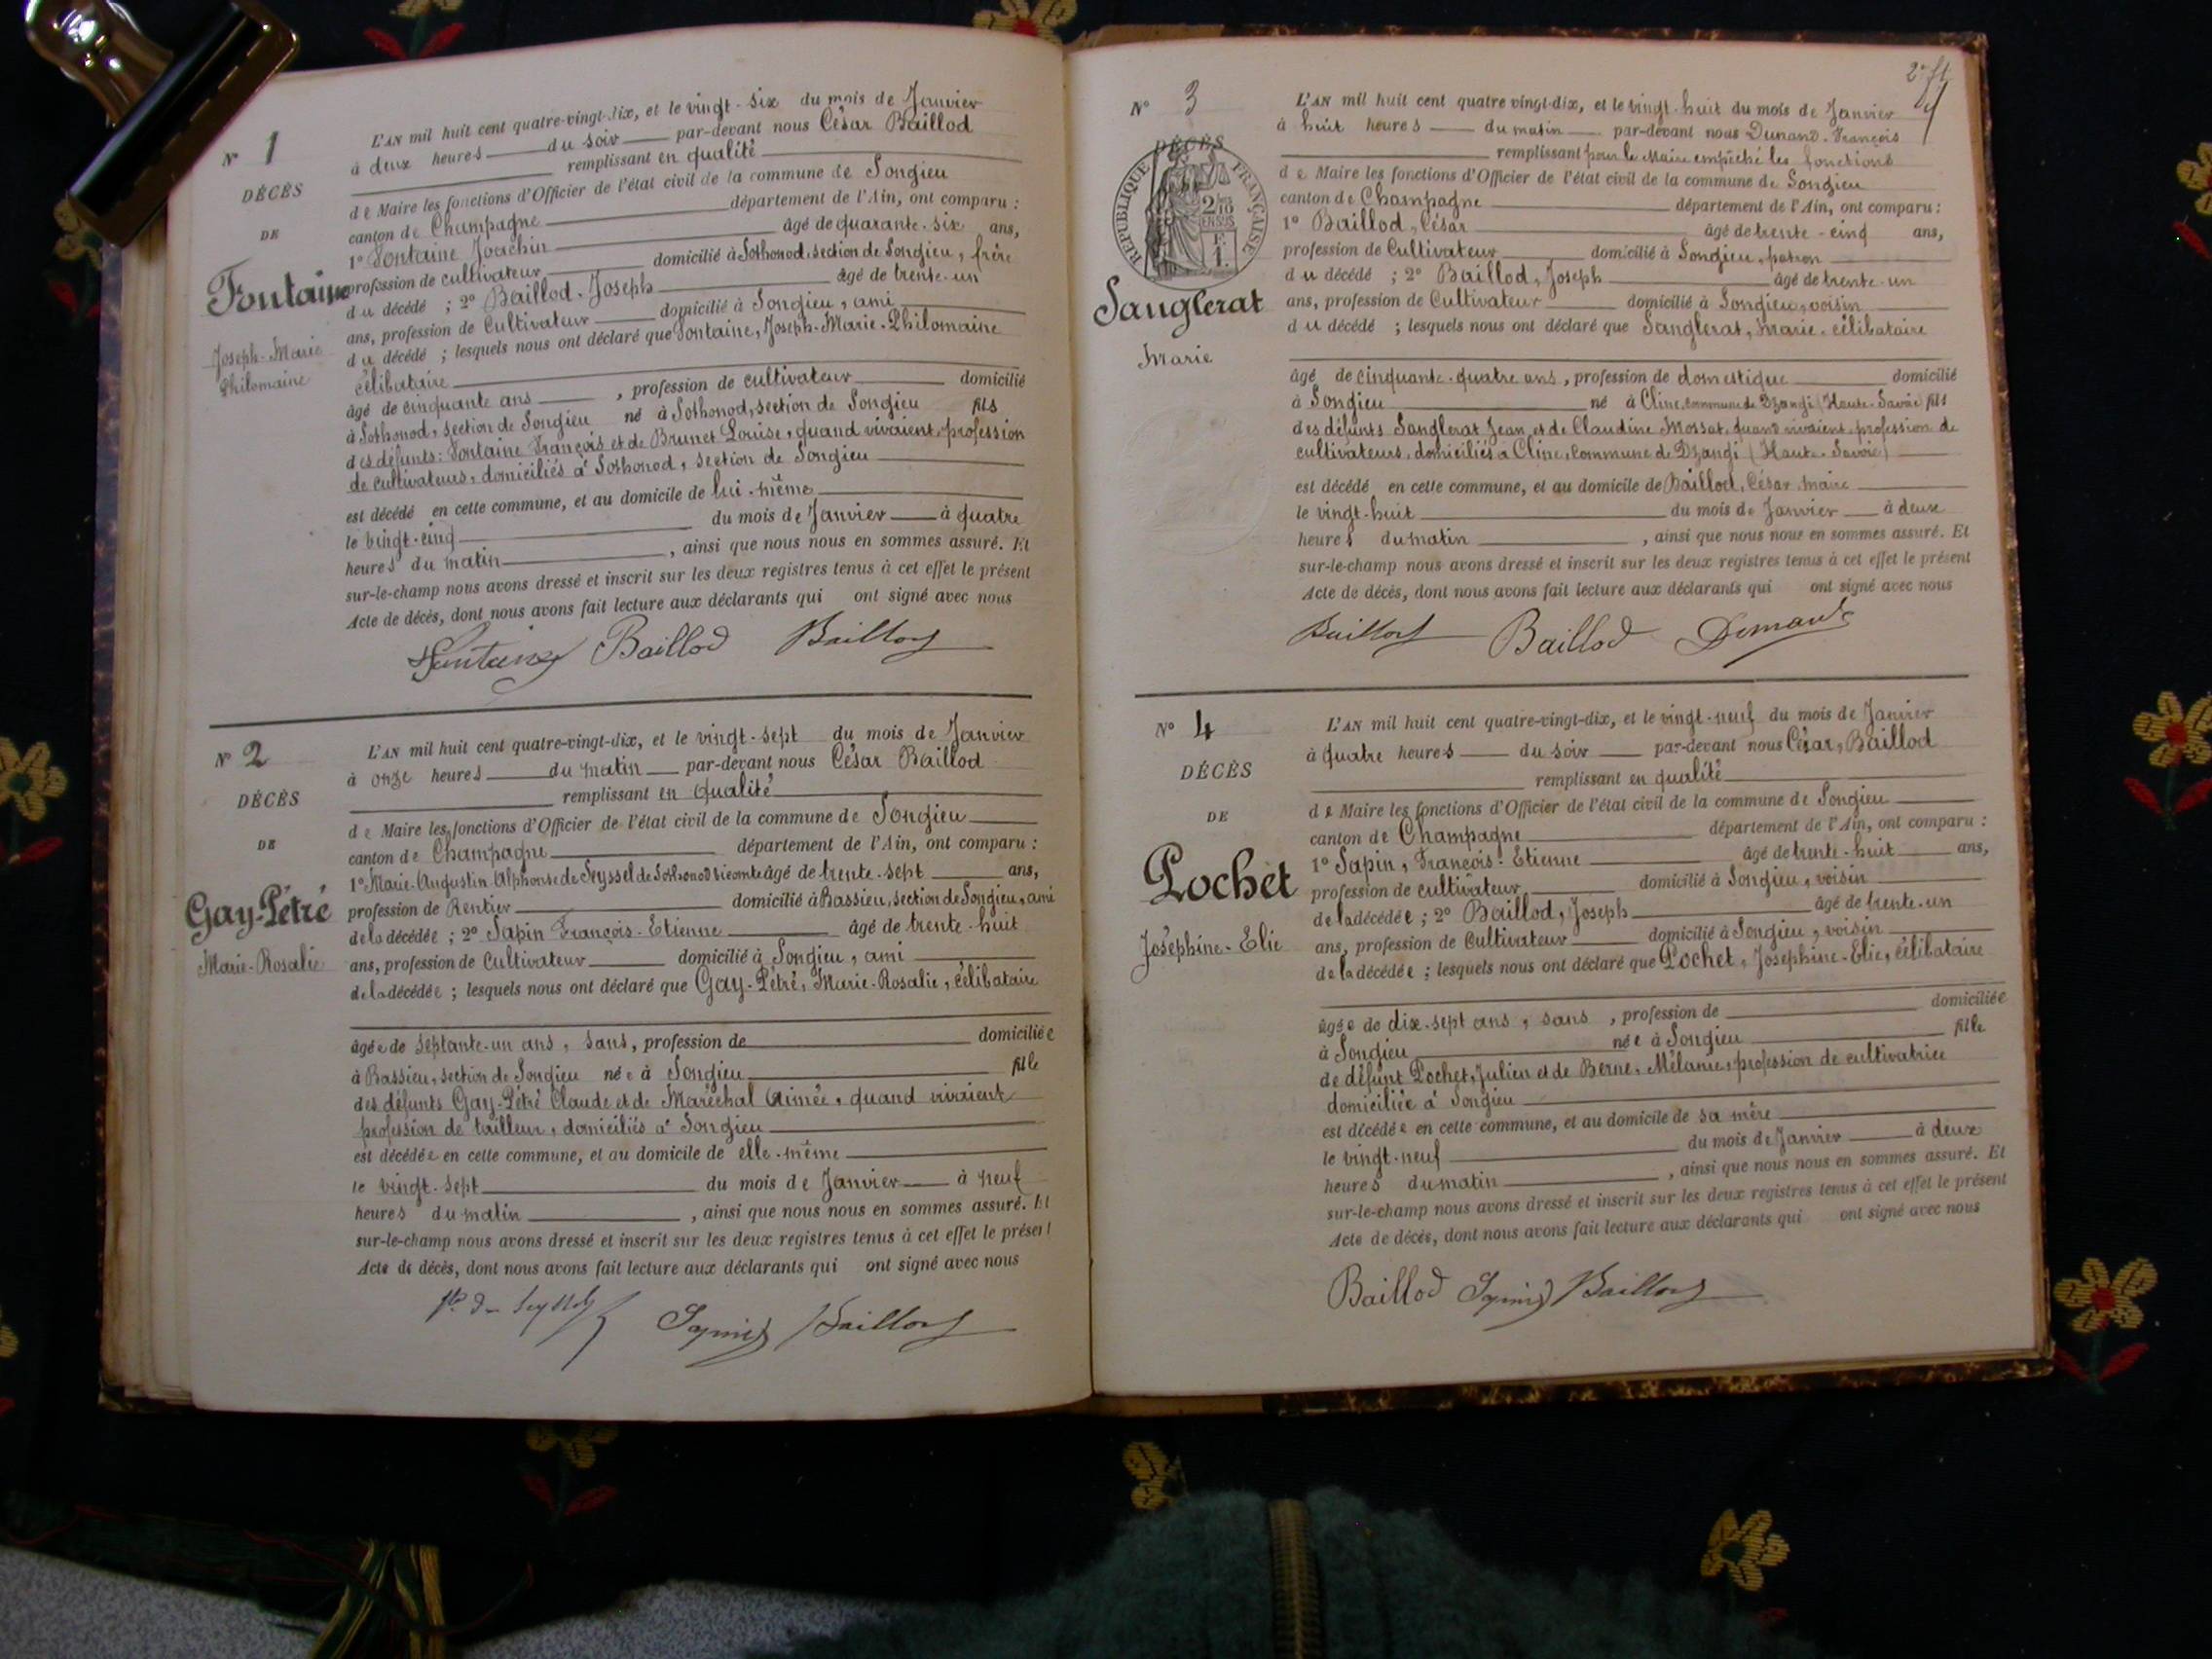 N° 1
DÉCÈS
DE
Fontaine
Joseph-Marie
Philomaine
L'AN mil huit cent quatre-vingt-dix, et le vingt-six du mois de Janvier
à deux heures du soir par-devant nous César Baillod
remplissant en qualité
de Maire les fonctions d'Officier de l'état civil de la commune de Songieu
canton de Champagne département de l'Ain, ont comparu :
1° Fontaine Joachin âgé de quarante-six ans,
profession de cultivateur domicilié à Sothonod, section de Songieu, frère
du décédé ; 2° Baillod, Joseph âgé de trente-un
ans, profession de Cultivateur domicilié à Songieu, ami
du décédé ; lesquels nous ont déclaré que Fontaine, Joseph-Marie-Philomaine
célibataire
âgé de cinquante ans , profession de cultivateur domicilié
à Sothonod, section de Songieu né à Sothonod, section de Songieu fils
des défunts: Fontaine François et de Brunet Louise, quand vivaient, profession
de cultivateurs, domiciliés à Sothonod, section de Songieu
est décédé en cette commune, et au domicile de lui-même
le vingt-cinq du mois de Janvier à quatre
heures du matin , ainsi que nous nous en sommes assuré. Et
sur-le-champ nous avons dressé et inscrit sur les deux registres tenus à cet effet le présent
Acte de décès, dont nous avons fait lecture aux déclarants qui ont signé avec nous
Fontaine Baillod Baillod
N° 2
DÉCÈS
DE
Gay-Pétré
Marie-Rosalie
L'AN mil huit cent quatre-vingt-dix, et le vingt-sept du mois de Janvier
à onze heures du matin par-devant nous César Baillod
remplissant en qualité
de Maire les fonctions d'Officier de l'état civil de la commune de Songieu
canton de Champagne département de l'Ain, ont comparu :
1° Marie-Augustin-Alphonse de Seyssel de Sothonod vicomte âgé de trente-sept ans,
profession de Rentier domicilié à Bassieu, section de Songieu, ami
de la décédée ; 2° Sapin François-Etienne âgé de trente-huit
ans, profession de Cultivateur domicilié à Songieu, ami
de la décédée ; lesquels nous ont déclaré que Gay-Pétré, Marie-Rosalie, célibataire
âgée de septante-un ans, sans, profession de domiciliée
à Bassieu, section de Songieu née à Songieu fille
des défunts Gay-Pétré Claude et de Maréchal Aimée, quand vivaient
profession de tailleur, domiciliés à Songieu
est décédée en cette commune, et au domicile de elle-même
le vingt-sept du mois de Janvier à neuf
heures du matin , ainsi que nous nous en sommes assuré. Et
sur-le-champ nous avons dressé et inscrit sur les deux registres tenus à cet effet le présent
Acte de décès, dont nous avons fait lecture aux déclarants qui ont signé avec nous
de Seyssel Sapin Baillod
2e ft
N° 3
DÉCÈS
RÉPUBLIQUE FRANÇAISE
2/10 EN SUS
F. 1.
Sanglerat
Marie
L'AN mil huit cent quatre vingt-dix, et le vingt-huit du mois de Janvier
à huit heures du matin par-devant nous Dunand-François
remplissant pour le Maire empêché les fonctions
de Maire les fonctions d'Officier de l'état civil de la commune de Songieu
canton de Champagne département de l'Ain, ont comparu :
1° Baillod, César âgé de trente-cinq ans,
profession de Cultivateur domicilié à Songieu, patron
du décédé ; 2° Baillod, Joseph âgé de trente-un
ans, profession de Cultivateur domicilié à Songieu, voisin
du décédé ; lesquels nous ont déclaré que Sanglerat, Marie, célibataire
âgé de cinquante-quatre ans, profession de domestique domicilié
à Songieu né à Cline, commune de Dzangi (Haute-Savoie) fils
des défunts Sanglerat Jean, et de Claudine Mossat, quand vivaient, profession de
cultivateurs, domiciliés à Cline, commune de Dzangi (Haute-Savoie)
est décédé en cette commune, et au domicile de Baillod, César, maire
le vingt-huit du mois de Janvier à deux
heures du matin , ainsi que nous nous en sommes assuré. Et
sur-le-champ nous avons dressé et inscrit sur les deux registres tenus à cet effet le présent
Acte de décès, dont nous avons fait lecture aux déclarants qui ont signé avec nous
Baillod Baillod Dunand
N° 4
DÉCÈS
DE
Pochet
Joséphine-Elie
L'AN mil huit cent quatre-vingt-dix, et le vingt-neuf du mois de Janvier
à quatre heures du soir par-devant nous César, Baillod
remplissant en qualité
de Maire les fonctions d'Officier de l'état civil de la commune de Songieu
canton de Champagne département de l'Ain, ont comparu :
1° Sapin, François-Etienne âgé de trente-huit ans,
profession de cultivateur domicilié à Songieu, voisin
de la décédée ; 2° Baillod, Joseph âgé de trente-un
ans, profession de Cultivateur domicilié à Songieu, voisin
de la décédée ; lesquels nous ont déclaré que Pochet, Josephine-Elie, célibataire
âgée de dix-sept ans, sans , profession de domiciliée
à Songieu née à Songieu fille
de défunt Pochet, Julien et de Berne, Mélanie, profession de cultivatrice
domiciliée à Songieu
est décédée en cette commune, et au domicile de sa mère
le vingt-neuf du mois de Janvier à deux
heures du matin , ainsi que nous nous en sommes assuré. Et
sur-le-champ nous avons dressé et inscrit sur les deux registres tenus à cet effet le présent
Acte de décès, dont nous avons fait lecture aux déclarants qui ont signé avec nous
Baillod Sapin Baillod